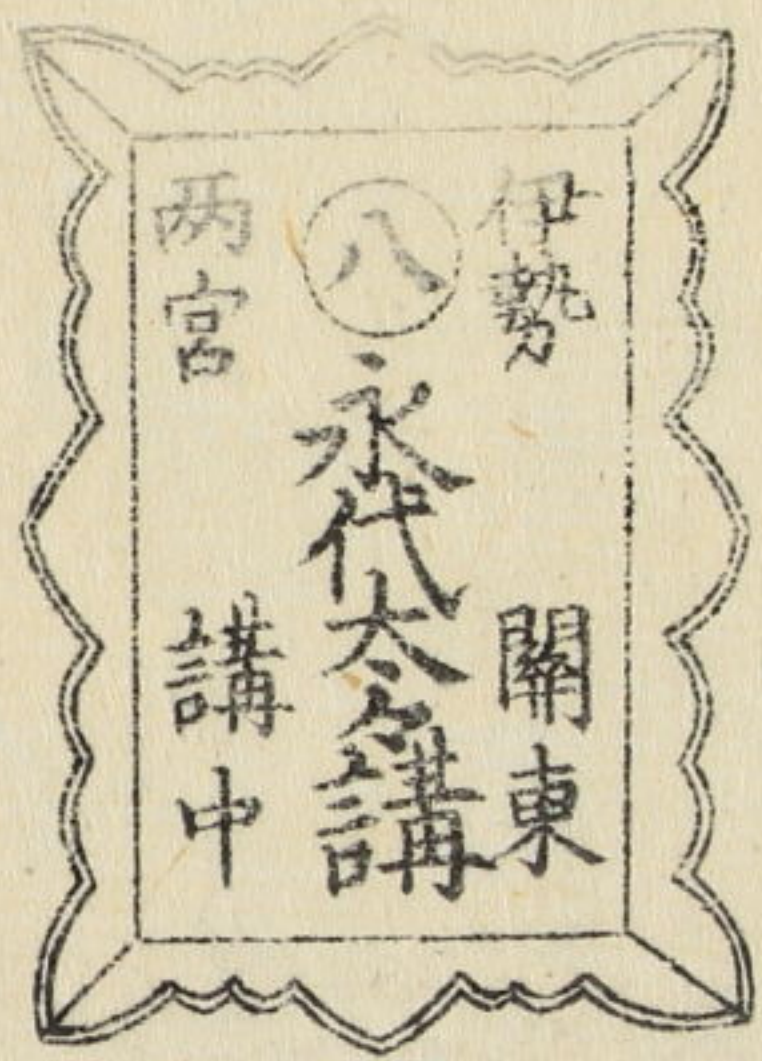 伊勢　關東
八
永代太々講
两宮　講中